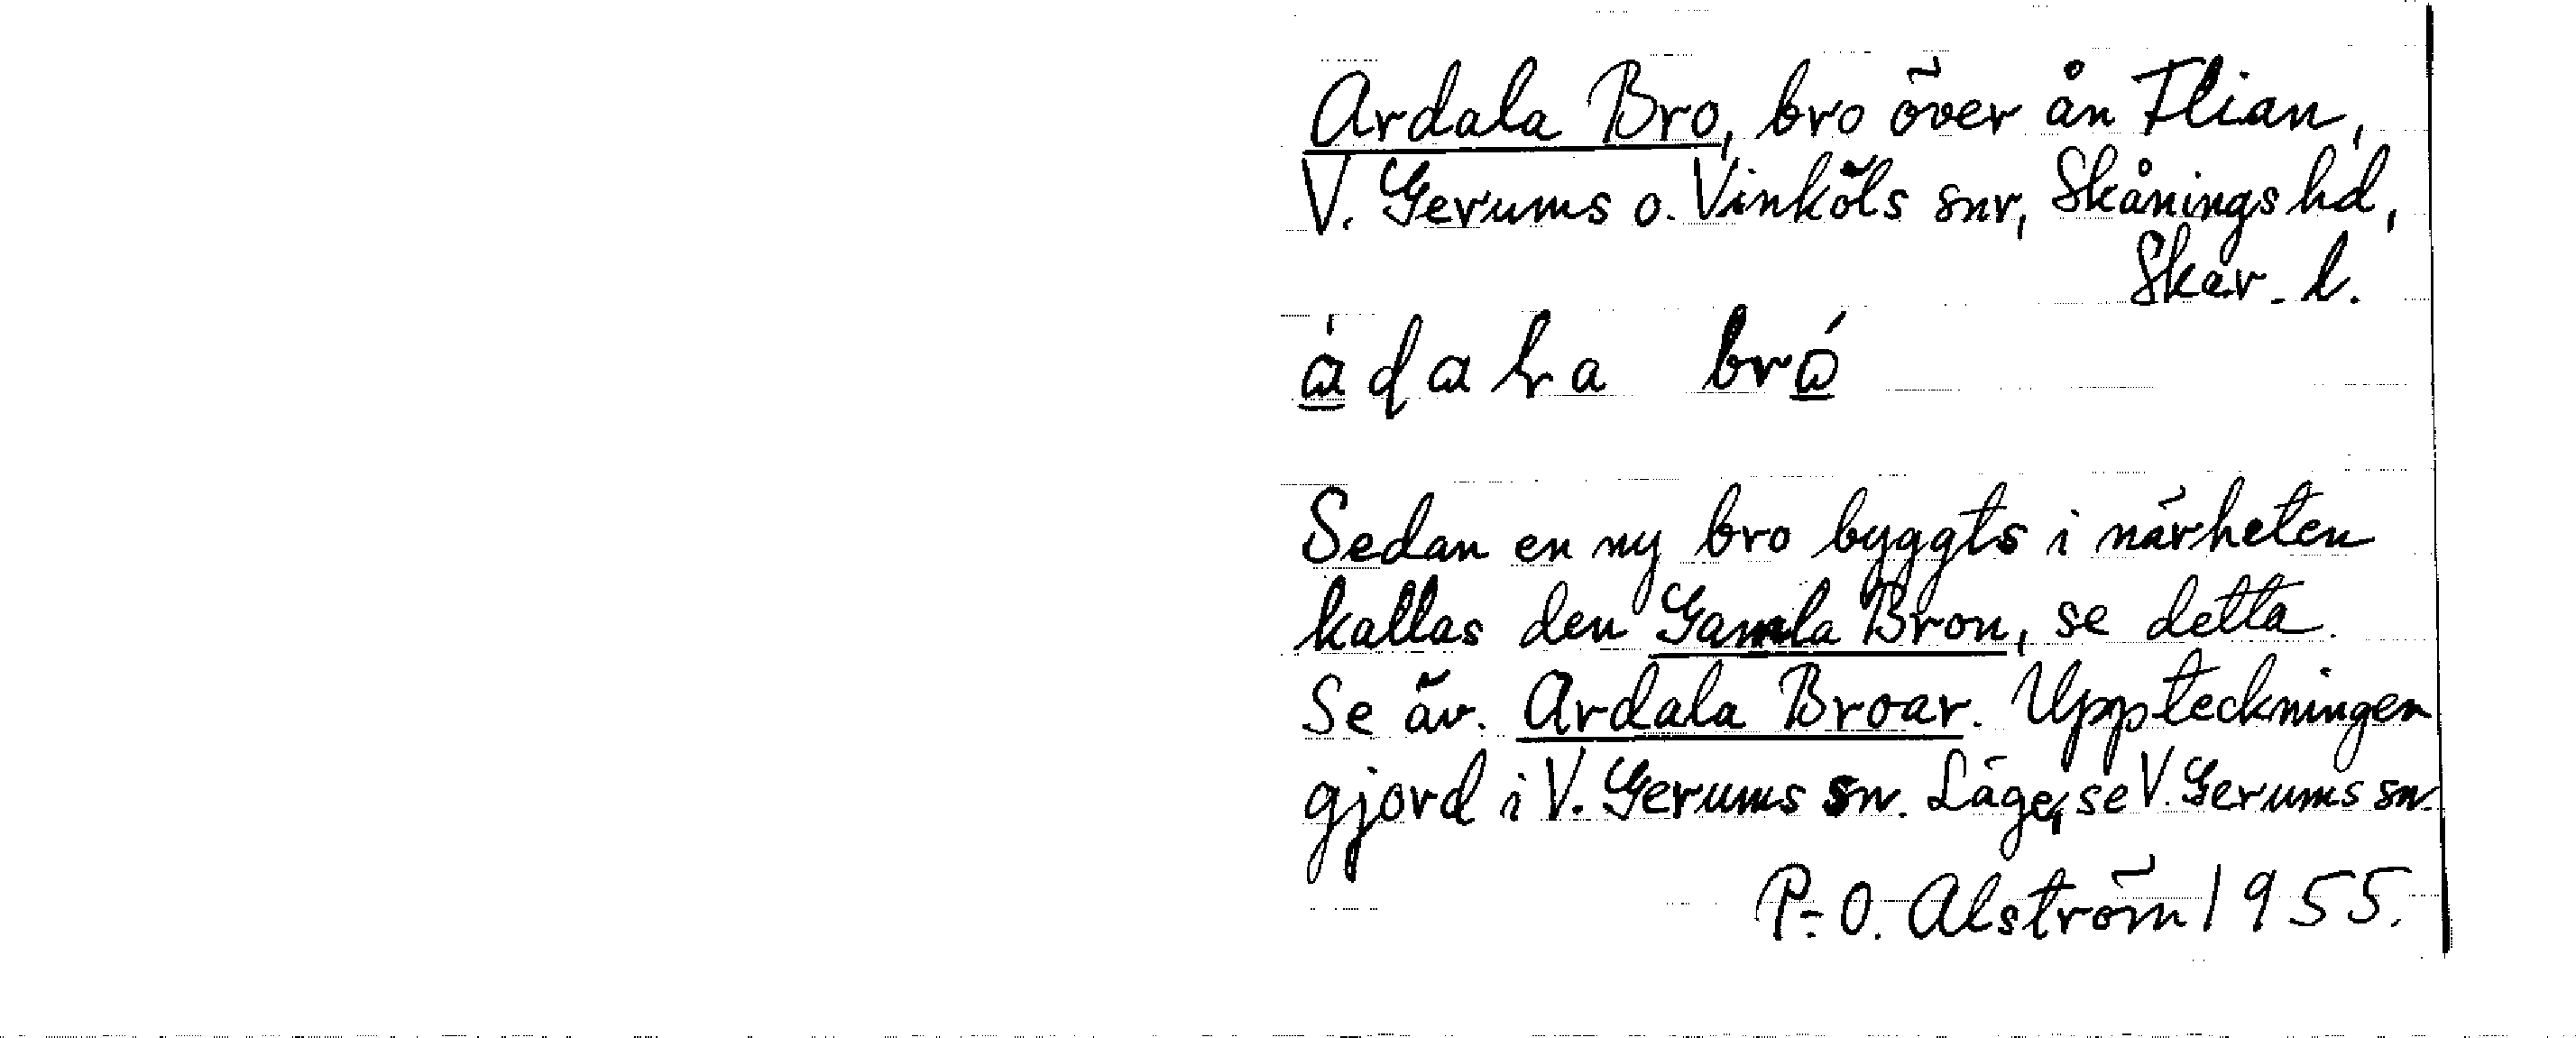 Ardala Bro, bro över ån Flian,
V. Gerums o. Vinköls snr, Skånings hd,
Skar. l.
Sedan en ny bro byggts i närheten
kallas den Gamla Bron, se detta.
Se äv. Ardala Broar. Uppteckningen
gjord i V. Gerums sn. Läge, se V. Gerums sn.
P.-O. Alström 1955.